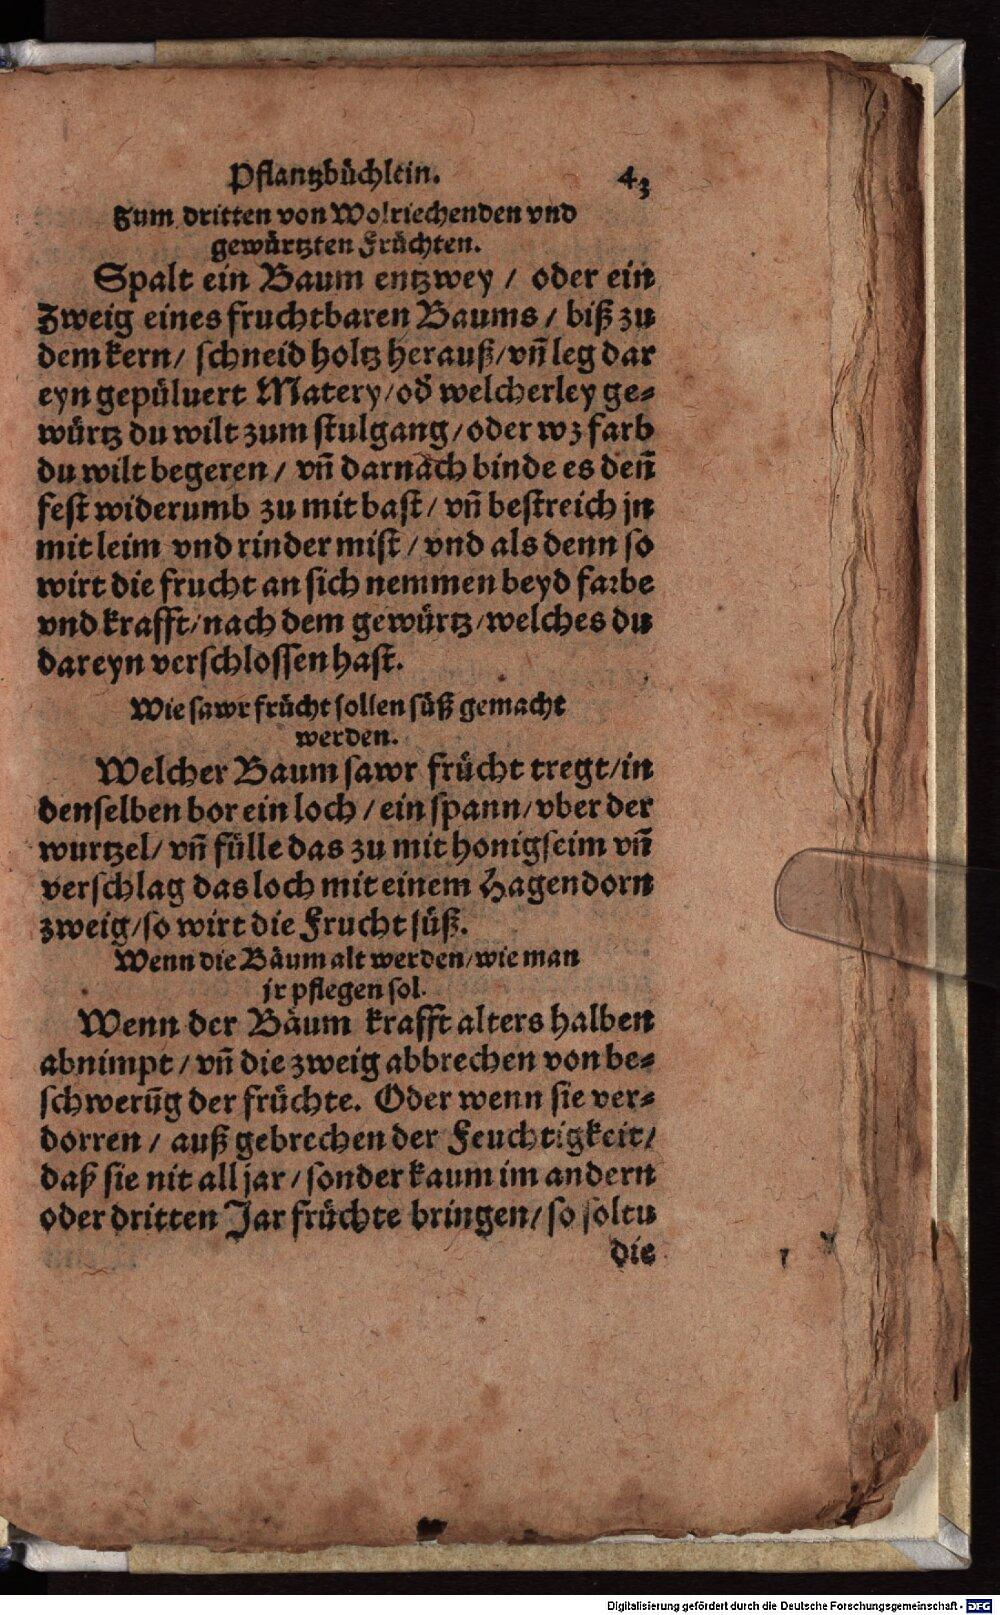 Pflantzbüchlein. 43
Zum dritten von Wolriechenden vnd
gewürtzten Früchten.
Spalt ein Baum entzwey / oder ein
Zweig eines fruchtbaren Baums / biß zu
dem kern / schneid holtz herauß / vñ leg dar
eyn gepüluert Matery / oď welcherley ge⸗
würtz du wilt zum stulgang / oder wz farb
du wilt begeren / vñ darnach binde es deñ
fest widerumb zu mit bast / vñ bestreich jn
mit leim vnd rinder mist / vnd als denn so
wirt die frucht an sich nemmen beyd farbe
vnd krafft / nach dem gewürtz / welches du
dareyn verschlossen hast.
Wie sawr frücht sollen süß gemacht
werden.
Welcher Baum sawr frücht tregt / in
denselben bor ein loch / ein spann / vber der
wurtzel / vñ fülle das zu mit honigseim vñ
verschlag das loch mit einem Hagendorn
zweig / so wirt die Frucht süß.
Wenn die Bäum alt werden / wie man
jr pflegen sol.
Wenn der Bäum krafft alters halben
abnimpt / vñ die zweig abbrechen von be⸗
schwerũg der früchte. Oder wenn sie ver⸗
dorren / auß gebrechen der Feuchtigkeit /
daß sie nit all jar / sonder kaum im andern
oder dritten Jar früchte bringen / so soltu
die
Digitalisierung gefördert durch die Deutsche Forschungsgemeinschaft - DFG